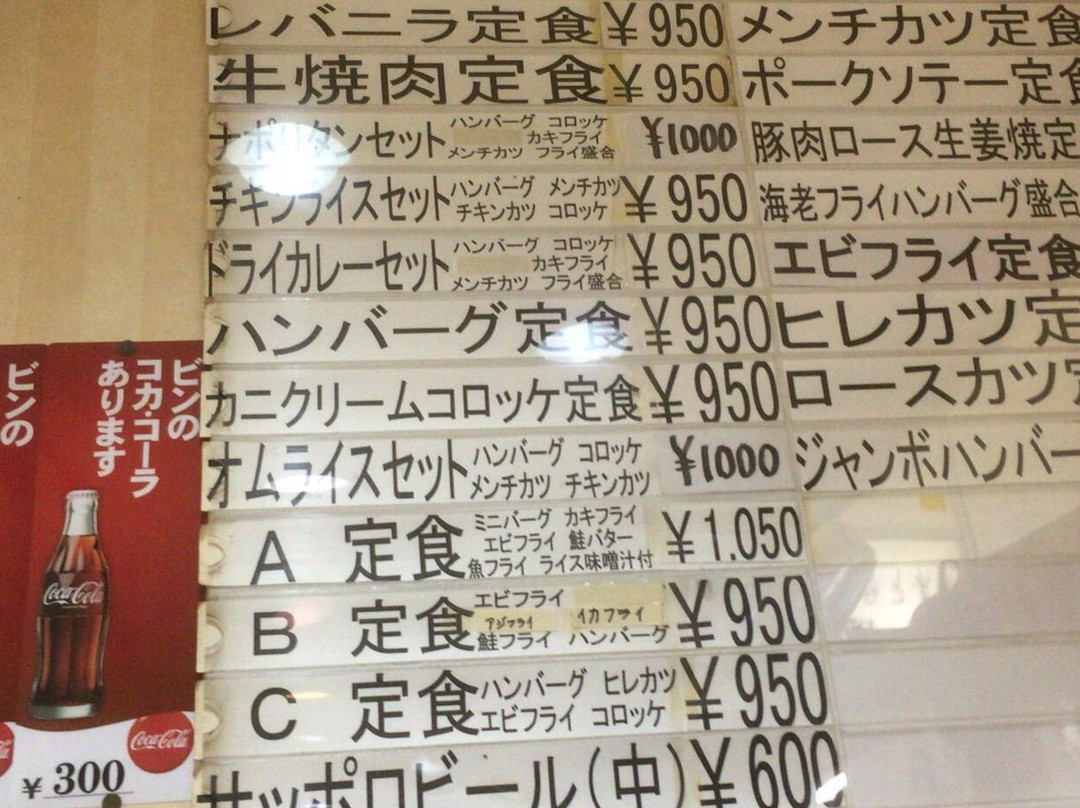 レバニラ定食 ¥950
牛焼肉定食 ¥950
ナポリタンセット ハンバーグ コロッケ カキフライ メンチカツ フライ盛合 ¥1000
チキンライスセット ハンバーグ メンチカツ チキンカツ コロッケ ¥950
ドライカレーセット ハンバーグ コロッケ カキフライ メンチカツ フライ盛合 ¥950
ハンバーグ定食 ¥950
カニクリームコロッケ定食 ¥950
オムライスセット ハンバーグ コロッケ メンチカツ チキンカツ ¥1000
A 定食 ミニバーグ カキフライ エビフライ 鮭バター 魚フライ ライス味噌汁付 ¥1.050
B 定食 エビフライ アジフライ イカフライ 鮭フライ ハンバーグ ¥950
C 定食 ハンバーグ ヒレカツ エビフライ コロッケ ¥950
サッポロビール(中) ¥600
メンチカツ定食
ポークソテー定食
豚肉ロース生姜焼定
海老フライハンバーグ盛合
エビフライ定食
ヒレカツ定
ロースカツ定
ジャンボハンバー
ビンの
コカ・コーラ
あります
Coca-Cola
Coca-Cola
¥300
ビンの